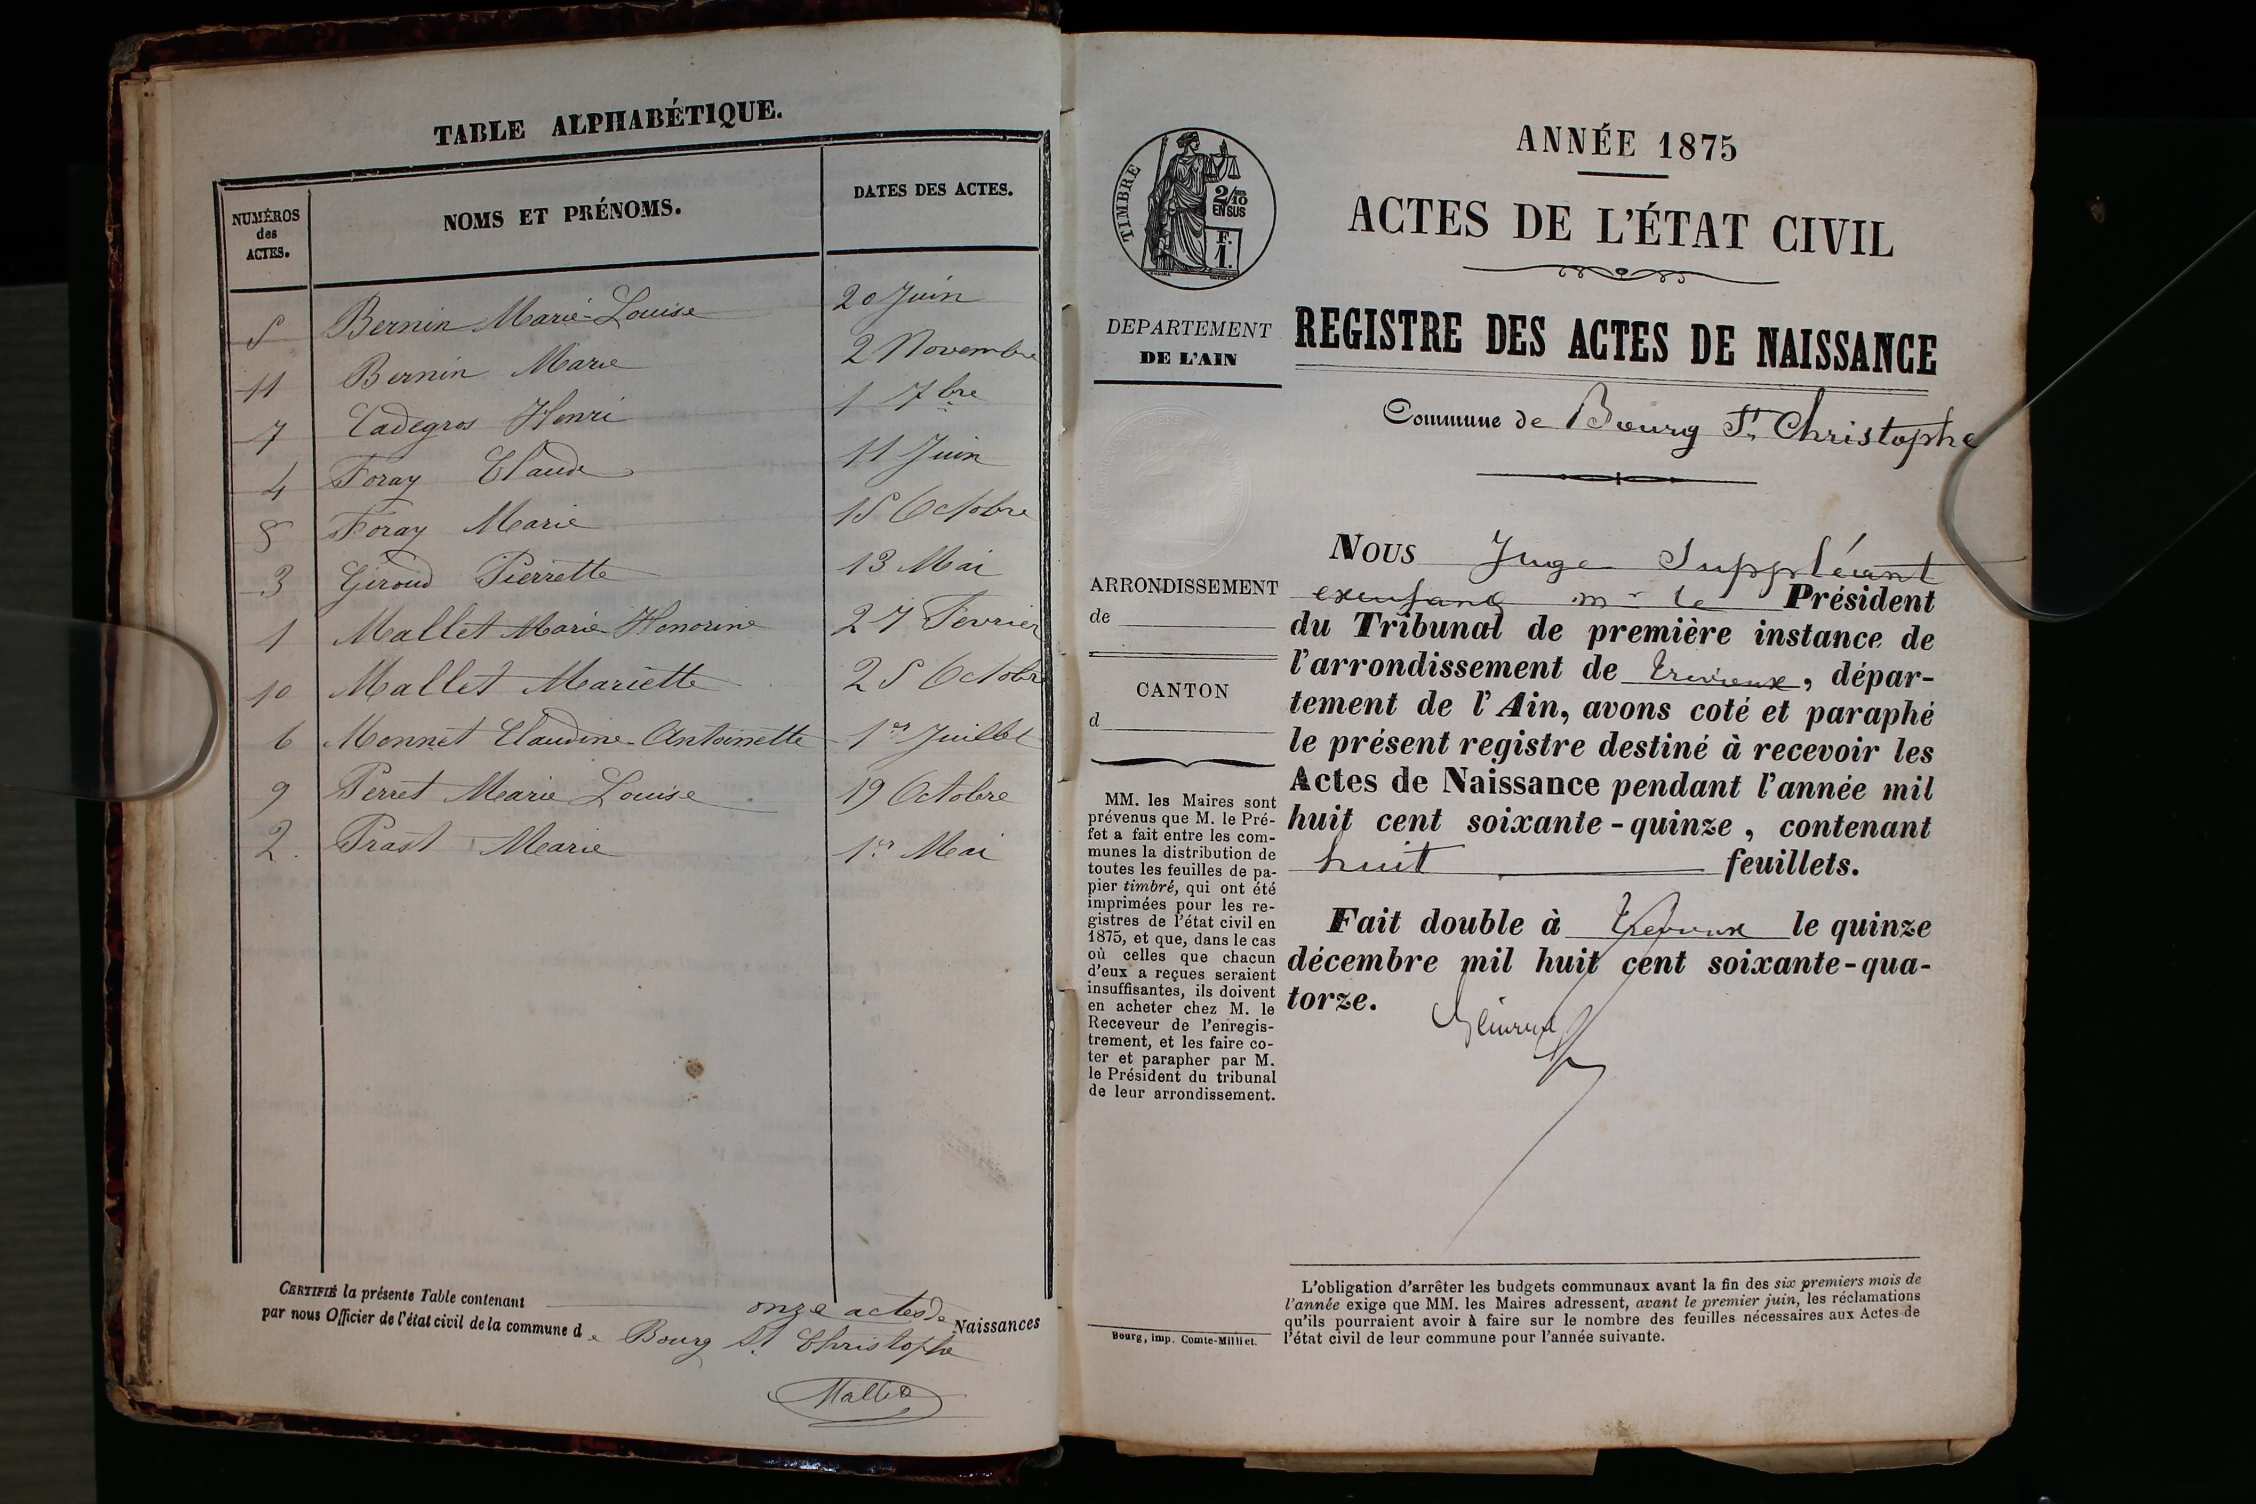 TABLE ALPHABÉTIQUE.
NUMÉROS des ACTES. NOMS ET PRÉNOMS. DATES DES ACTES.
5 Bernin Marie-Louise 20 Juin
11 Bernin Marie 2 Novembre
7 Cadegros Henri 1 7bre
4 Foray Claude 11 Juin
8 Foray Marie 15 Octobre
3 Giroud Pierrette 13 Mai
1 Mallet Marie Honorine 27 Fevrier
10 Mallet Mariette 25 Octobre
6 Monnet Claudine-Antoinette 1er Juillet
9 Perret Marie Louise 19 Octobre
2. Prast Marie 1er Mai
CERTIFIÉ la présente Table contenant onze actes de Naissances
par nous Officier de l'état civil de la commune de Bourg St Christophe
TIMBRE
2/10
EN SUS
F.
1.
DEPARTEMENT
DE L'AIN
ARRONDISSEMENT
de
CANTON
d
MM. les Maires sont
prévenus que M. le Pré-
fet a fait entre les com-
munes la distribution de
toutes les feuilles de pa-
pier timbré, qui ont été
imprimées pour les re-
gistres de l'état civil en
1875, et que, dans le cas
où celles que chacun
d'eux a reçues seraient
insuffisantes, ils doivent
en acheter chez M. le
Receveur de l'enregis-
trement, et les faire co-
ter et parapher par M.
le Président du tribunal
de leur arrondissement.
Bourg, imp. Comte-Milliet.
ANNÉE 1875
ACTES DE L'ÉTAT CIVIL
REGISTRE DES ACTES DE NAISSANCE
Commune de Bourg St Christophe
NOUS Juge Suppléant
mr le Président
du Tribunal de première instance de
l'arrondissement de Trévoux, dépar-
tement de l'Ain, avons coté et paraphé
le présent registre destiné à recevoir les
Actes de Naissance pendant l'année mil
huit cent soixante-quinze, contenant
huit feuillets.
Fait double à Trévoux le quinze
décembre mil huit cent soixante-qua-
torze.
L'obligation d'arrêter les budgets communaux avant la fin des six premiers mois de
l'année exige que MM. les Maires adressent, avant le premier juin, les réclamations
qu'ils pourraient avoir à faire sur le nombre des feuilles nécessaires aux Actes de
l'état civil de leur commune pour l'année suivante.